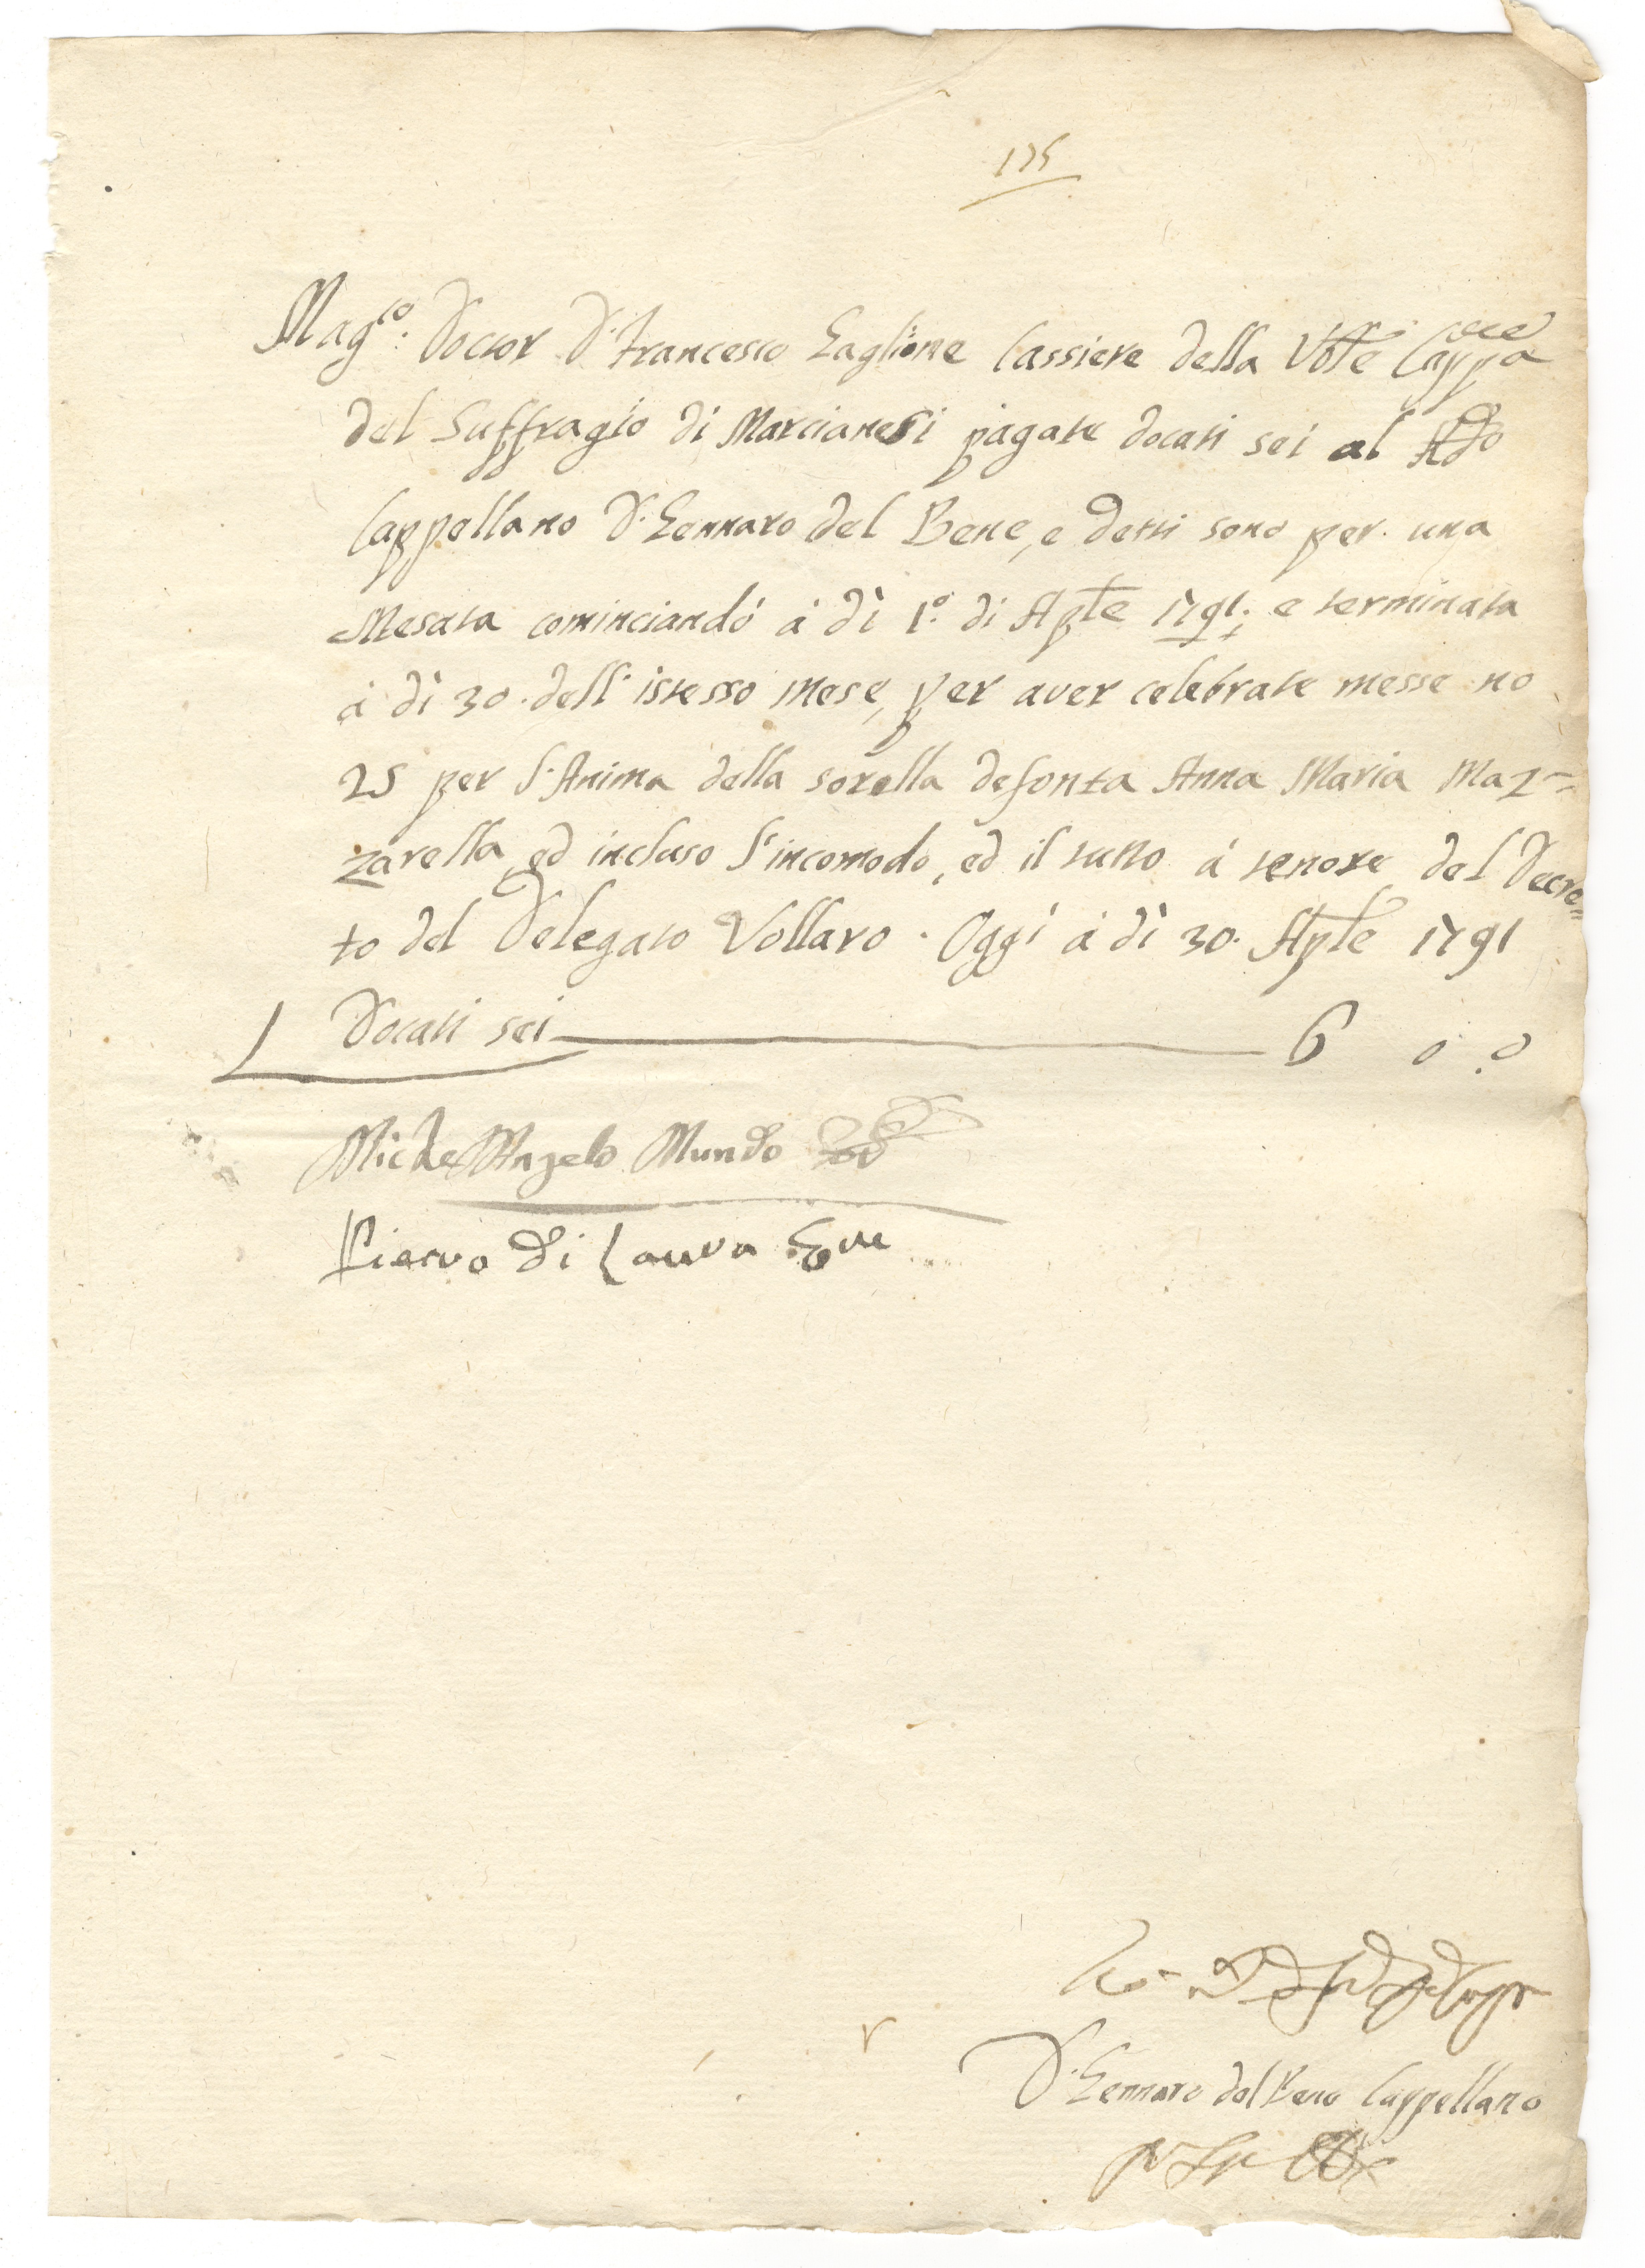 175
Mag.co Dottor D. Francesco Gaglione Cassiere della Vble Cappa
del Suffragio di Marcianesi pagate docati sei al Rdo
Cappellano D. Gennaro del Bene, e detti sono per una
Mesata cominciando à dì 1.o di Aple 1791; e terminata
à dì 30. dell'istesso mese, per aver celebrate messe no
25 per l'Anima della sorella defonta Anna Maria Maz=
zarella, ed incluso l'incomodo, ed il tutto à tenore del Decre=
to del Delegato Vollaro. Oggi à dì 30. Aple 1791
Docati sei 6 0.0
MicheMAngelo Mundo
Pietro di Laura
D. Gennaro del Bene Cappellano